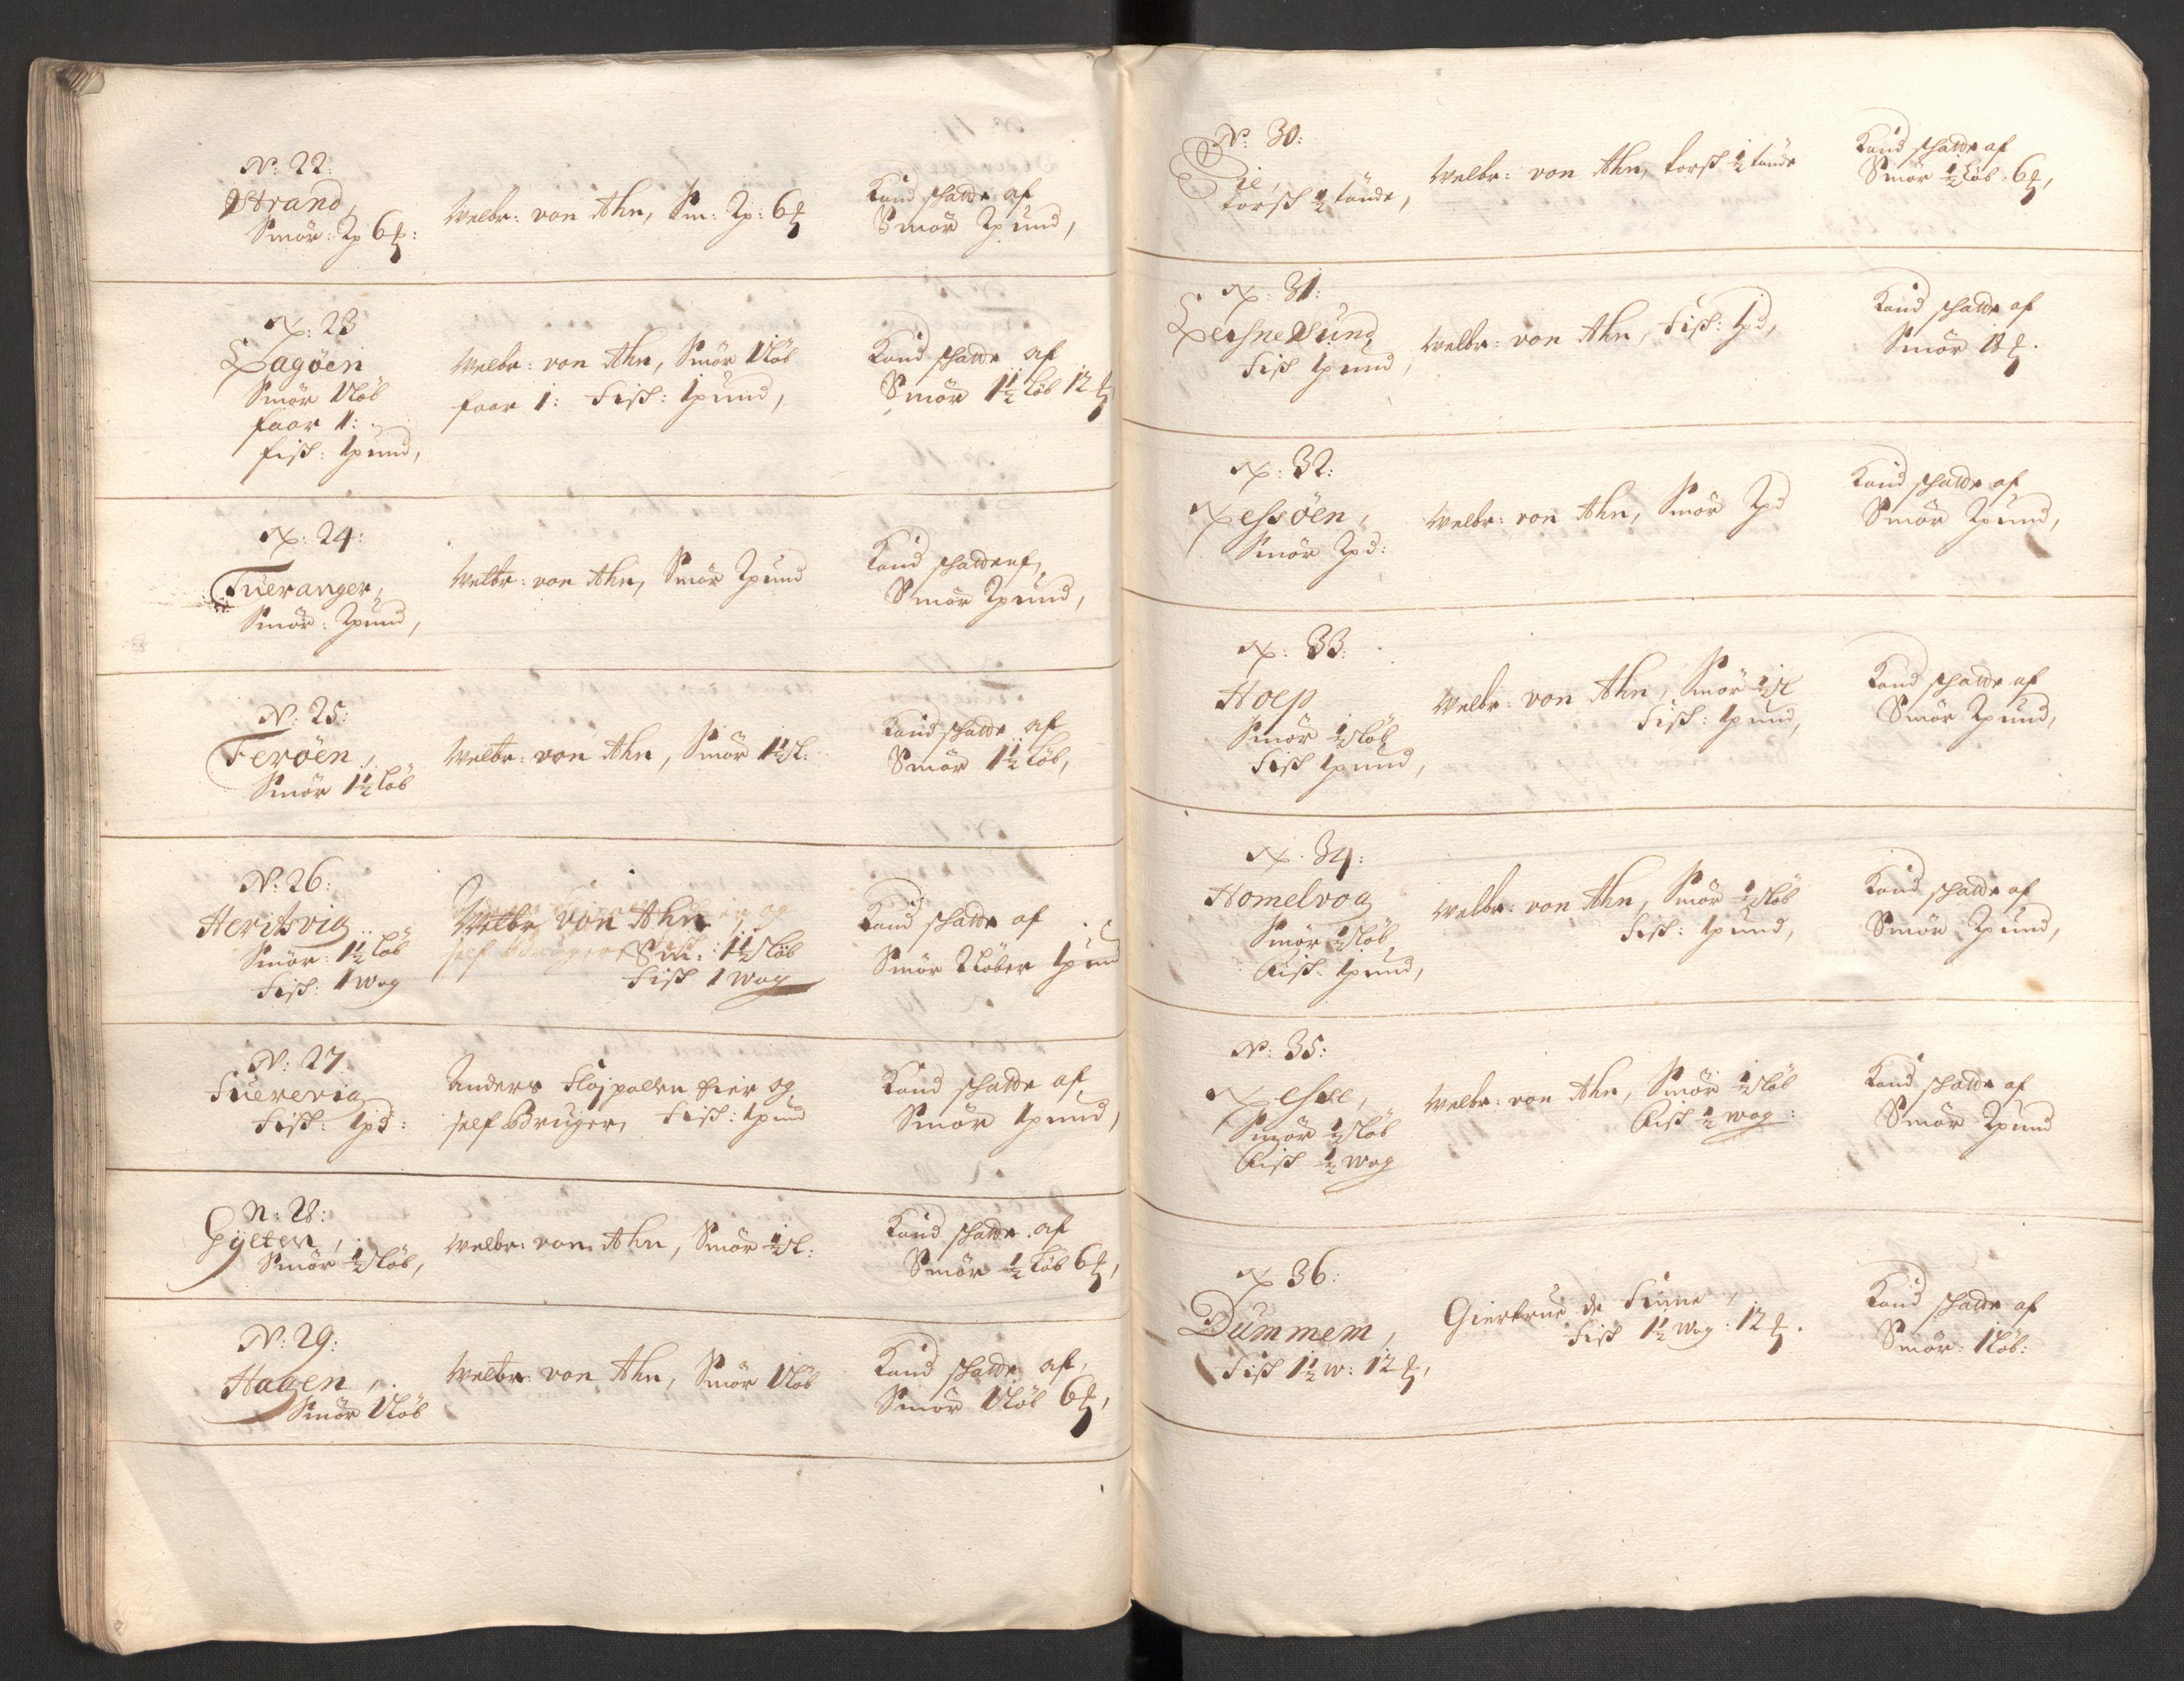 N: 22:
Strand,
Smör: 2p 6 ℔:
Welbr: von Ahn, Sm: 2p: 6 ℔
Kand schatte af
Smör 2pund,
N: 23
Lagöen
Smör 1Löb
faar 1:
fisk: 1pund,
Welbr: von Ahn, Smör 1Löb
faar 1: Fisk: 1pund,
Kand schatte af
Smör 1½ Löb 12 ℔
N: 24:
Tueranger,
Smör: 2pund,
Welbr: von Ahn, Smör 2pund
Kand schatte af,
Smör 2pund,
N: 25:
Feröen,
Smör 1½ Löb
Welbr: von Ahn, Smör 1½ L:
Kand schatte af
Smör 1½ Löb,
N: 26:
Heritsvig
Smör: 1½ Löb
Fisk: 1 Wog
Welbr von Ahn
Sm: 1½ Löb
Fisk 1 Wog
Kand schatte af
Smör 2Löber 1pund
N: 27
Fuerevig
Fisk: 1pd:
Anders Fløjpallen Eier og
self Bruger, Fisk: 1pund
Kand schatte af
Smör 1pund,
N: 28:
Gylten,
Smör ½ Löb,
Welbr: von Ahn, Smör ½ L:
Kand schatte af
Smör ½ Löb 6 ℔,
N: 29:
Hagen,
Smör 1Löb
Welbr: von Ahn, Smör 1Löb
Kand schatte af,
Smör 1Löb 6 ℔,
N: 30:
Eie,
torsk ½ tönde,
Welbr: von Ahn, torsk ½ tönde
Kand schatte af
Smör ½ Löb: 6 ℔,
N: 31:
Leisnesund
Fisk 1pund,
Welbr: von Ahn, Fisk: 1pd,
Kand schatte af
Smör 18 ℔.
N: 32:
Nessöen,
Smör 2pd:
Welbr: von Ahn, Smör 2pd
Kand schatte af
Smör 2pund,
N: 33:
Hoep
Smör ½ Löb,
Fisk 1pund,
Welbr: von Ahn, Smör ½ L
Fisk: 1pund,
Kand schatte af
Smör 2pund,
N: 34:
Homelvog
Smör ½ Löb,
Fisk: 1pund,
Welbr: von Ahn, Smör ½ Löb
Fisk: 1pund,
Kand schatte af
Smör 2pund,
N: 35:
Nesse,
Smör ½ Löb
Fisk ½ Wog
Welbr: von Ahn, Smör ½ Löb
Fisk ½ Wog:
Kand schatte af
Smör 2pund
N: 36:
Dummem,
Fisk 1½ W: 12 ℔,
Giertrue de Fiine,
Fisk 1½ Wog: 12 ℔.
Kand schatte af
Smör: 1Löb: